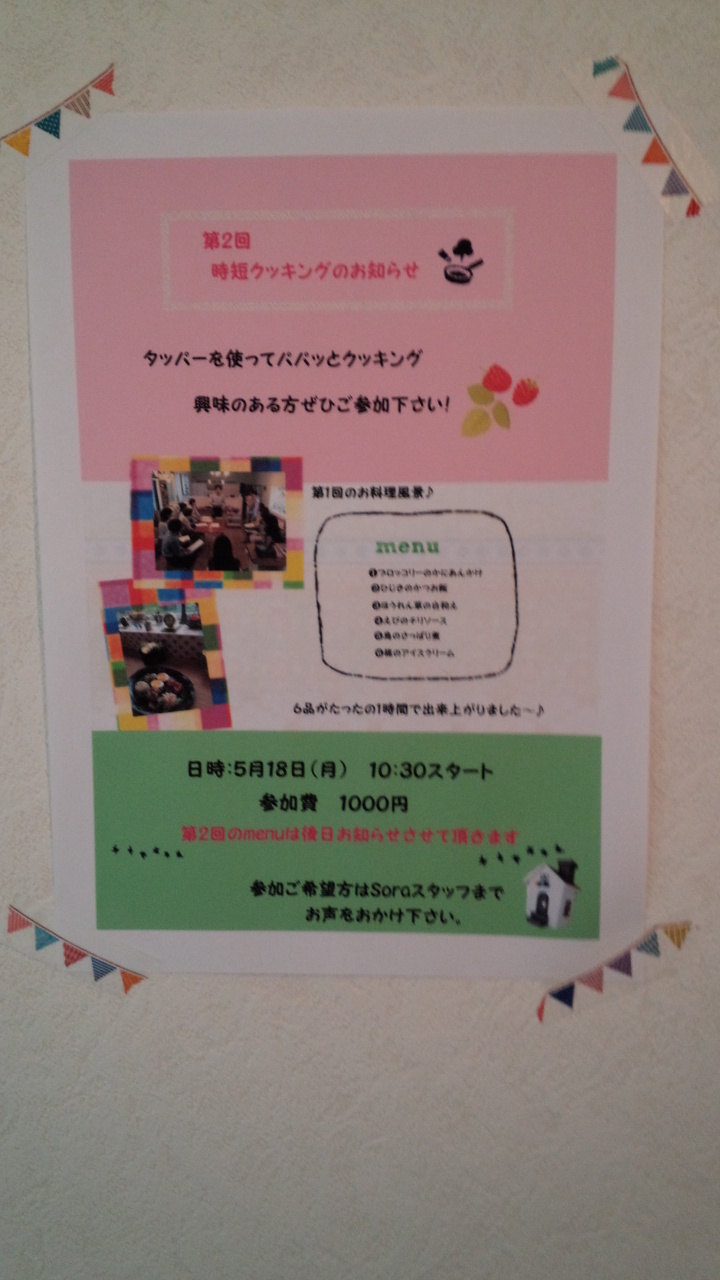 第2回
時短クッキングのお知らせ
タッパーを使ってパパッとクッキング
興味のある方ぜひご参加下さい!
第1回のお料理風景♪
menu
❶ブロッコリーのかにあんかけ
❷ひじきのかつお煮
❸ほうれん草の白和え
❹えびのチリソース
❺鳥のさっぱり煮
❻桃のアイスクリーム
6品がたったの1時間で出来上がりました〜♪
日時:5月18日(月) 10:30スタート
参加費 1000円
第2回のmenuは後日お知らせさせて頂きます
参加ご希望方はSoraスタッフまで
お声をおかけ下さい。